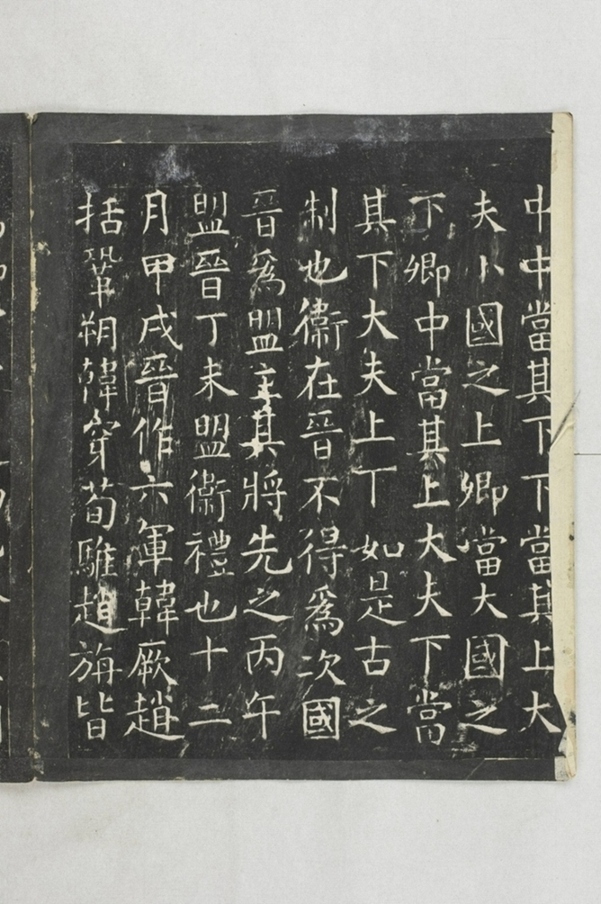 中中當其下下當其上大
夫小國之上卿當大國之
下卿中當其上大夫下當
其下大夫上下如是古之
制也衞在晉不得爲次國
晉爲盟主其將先之丙午
盟晉丁未盟衞禮也十二
月甲戌晉作六軍韓厥趙
括鞏朔韓穿荀騅趙旃皆